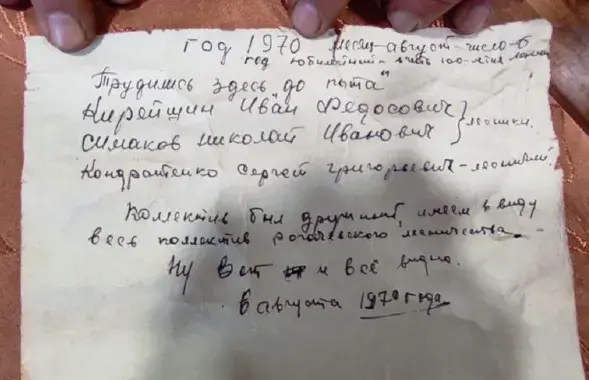 год 1970 месяц-август-число-6
год юбилейный - 100-летия
Трудились здесь до пота"
Кирейщин Иван Федосович
Симаков Николай Иванович } лесники.
Кондратенко Сергей Григорьевич - лесничий.
Коллектив был дружный, имеем в виду
весь коллектив Рогачевского лесничества.
Ну вот и всё видно.
6 августа 1970 года